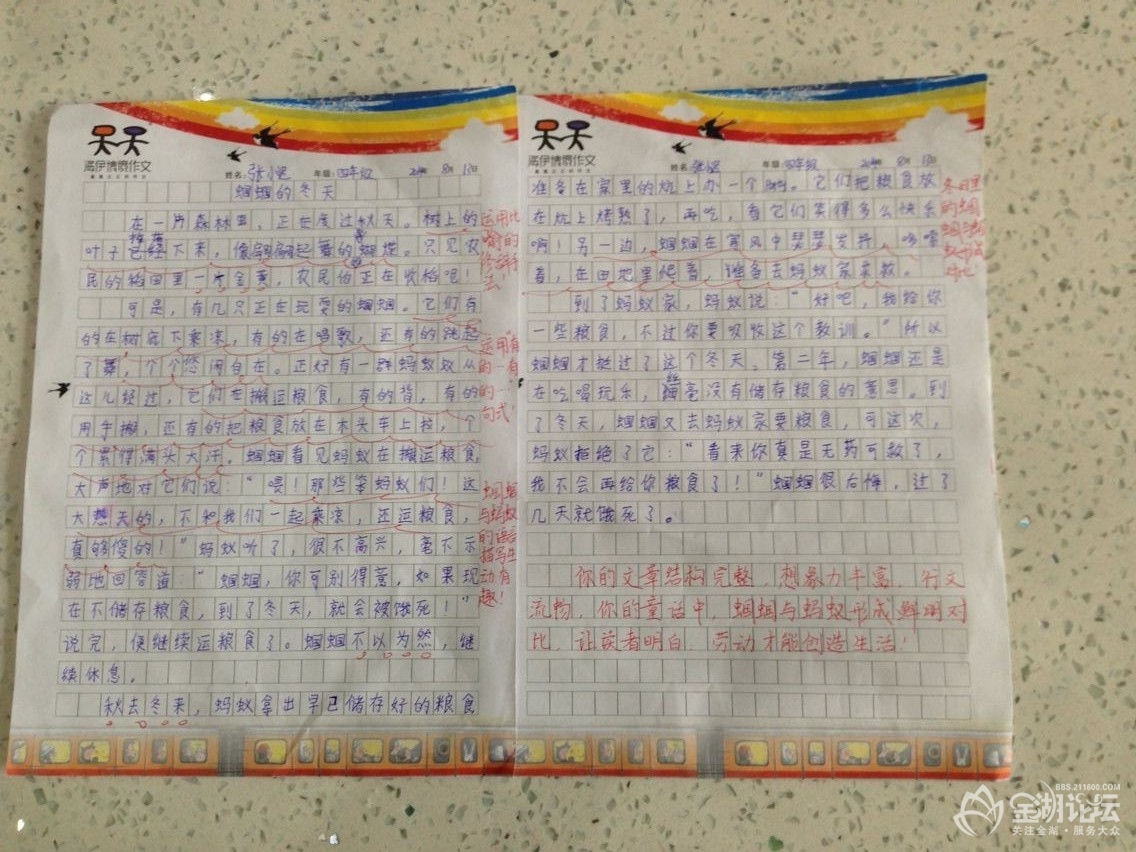 天天
海伊情景作文
姓名: 张小 年级: 四年级 8月 1日
蝈蝈的冬天
在一片森林里，正在度过秋天。树上的
叶子已经掉落下来，像翩翩起舞的蝴蝶。只见农
民的稻田里一片金黄，农民伯正在收稻呢！
可是，有几只正在玩耍的蝈蝈。它们有
的在树底下乘凉，有的在唱歌，还有的跳起
了舞，个个悠闲自在。正好有一群蚂蚁蚁从
这儿经过，它们在搬运粮食，有的背，有的
用手搬，还有的把粮食放在木头车上拉，个
个累得满头大汗。蝈蝈看见蚂蚁在搬运粮食，
大声地对它们说：“喂！那些笨蚂蚁们！这
大热天的，不和我们一起乘凉，还运粮食，
真够傻的！”蚂蚁听了，很不高兴，毫不示
弱地回答道：“蝈蝈，你可别得意，如果现
在不储存粮食，到了冬天，就会被饿死！”
说完，便继续运粮食了。蝈蝈不以为然，继
续休息。
秋去冬来，蚂蚁拿出早已储存好的粮食
运用比
喻的
修辞手
法！
运用有
的一有
的一
句式！
蝈蝈
与蚂蚁
的语言
描写生
动有
趣！
天天
海伊情景作文
姓名: 张 年级: 四年级 8月 1日
准备在家里的炕上办一个。它们把粮食放
在炕上烤熟了，再吃，看它们笑得多么快乐
啊！另一边，蝈蝈在寒风中瑟瑟发抖，哆嗦
着，在田地里爬着，准备去蚂蚁家求救。
到了蚂蚁家，蚂蚁说：“好吧，我给你
一些粮食，不过你要吸收这个教训。”所以
蝈蝈才挺过了这个冬天。第二年，蝈蝈还是
在吃喝玩乐，丝毫没有储存粮食的意思。到
了冬天，蝈蝈又去蚂蚁家要粮食，可这次，
蚂蚁拒绝了它：“看来你真是无药可救了，
我不会再给你粮食了！”蝈蝈很后悔，过了
几天就饿死了。
冬日里
的蝈
蝈与蚂
蚁形成
对比
你的文章结构完整，想象力丰富，行文
流畅，你的童话中，蝈蝈与蚂蚁形成鲜明对
比，让读者明白，劳动才能创造生活
BBS.211600.COM
金湖论坛
关注金湖·服务大众